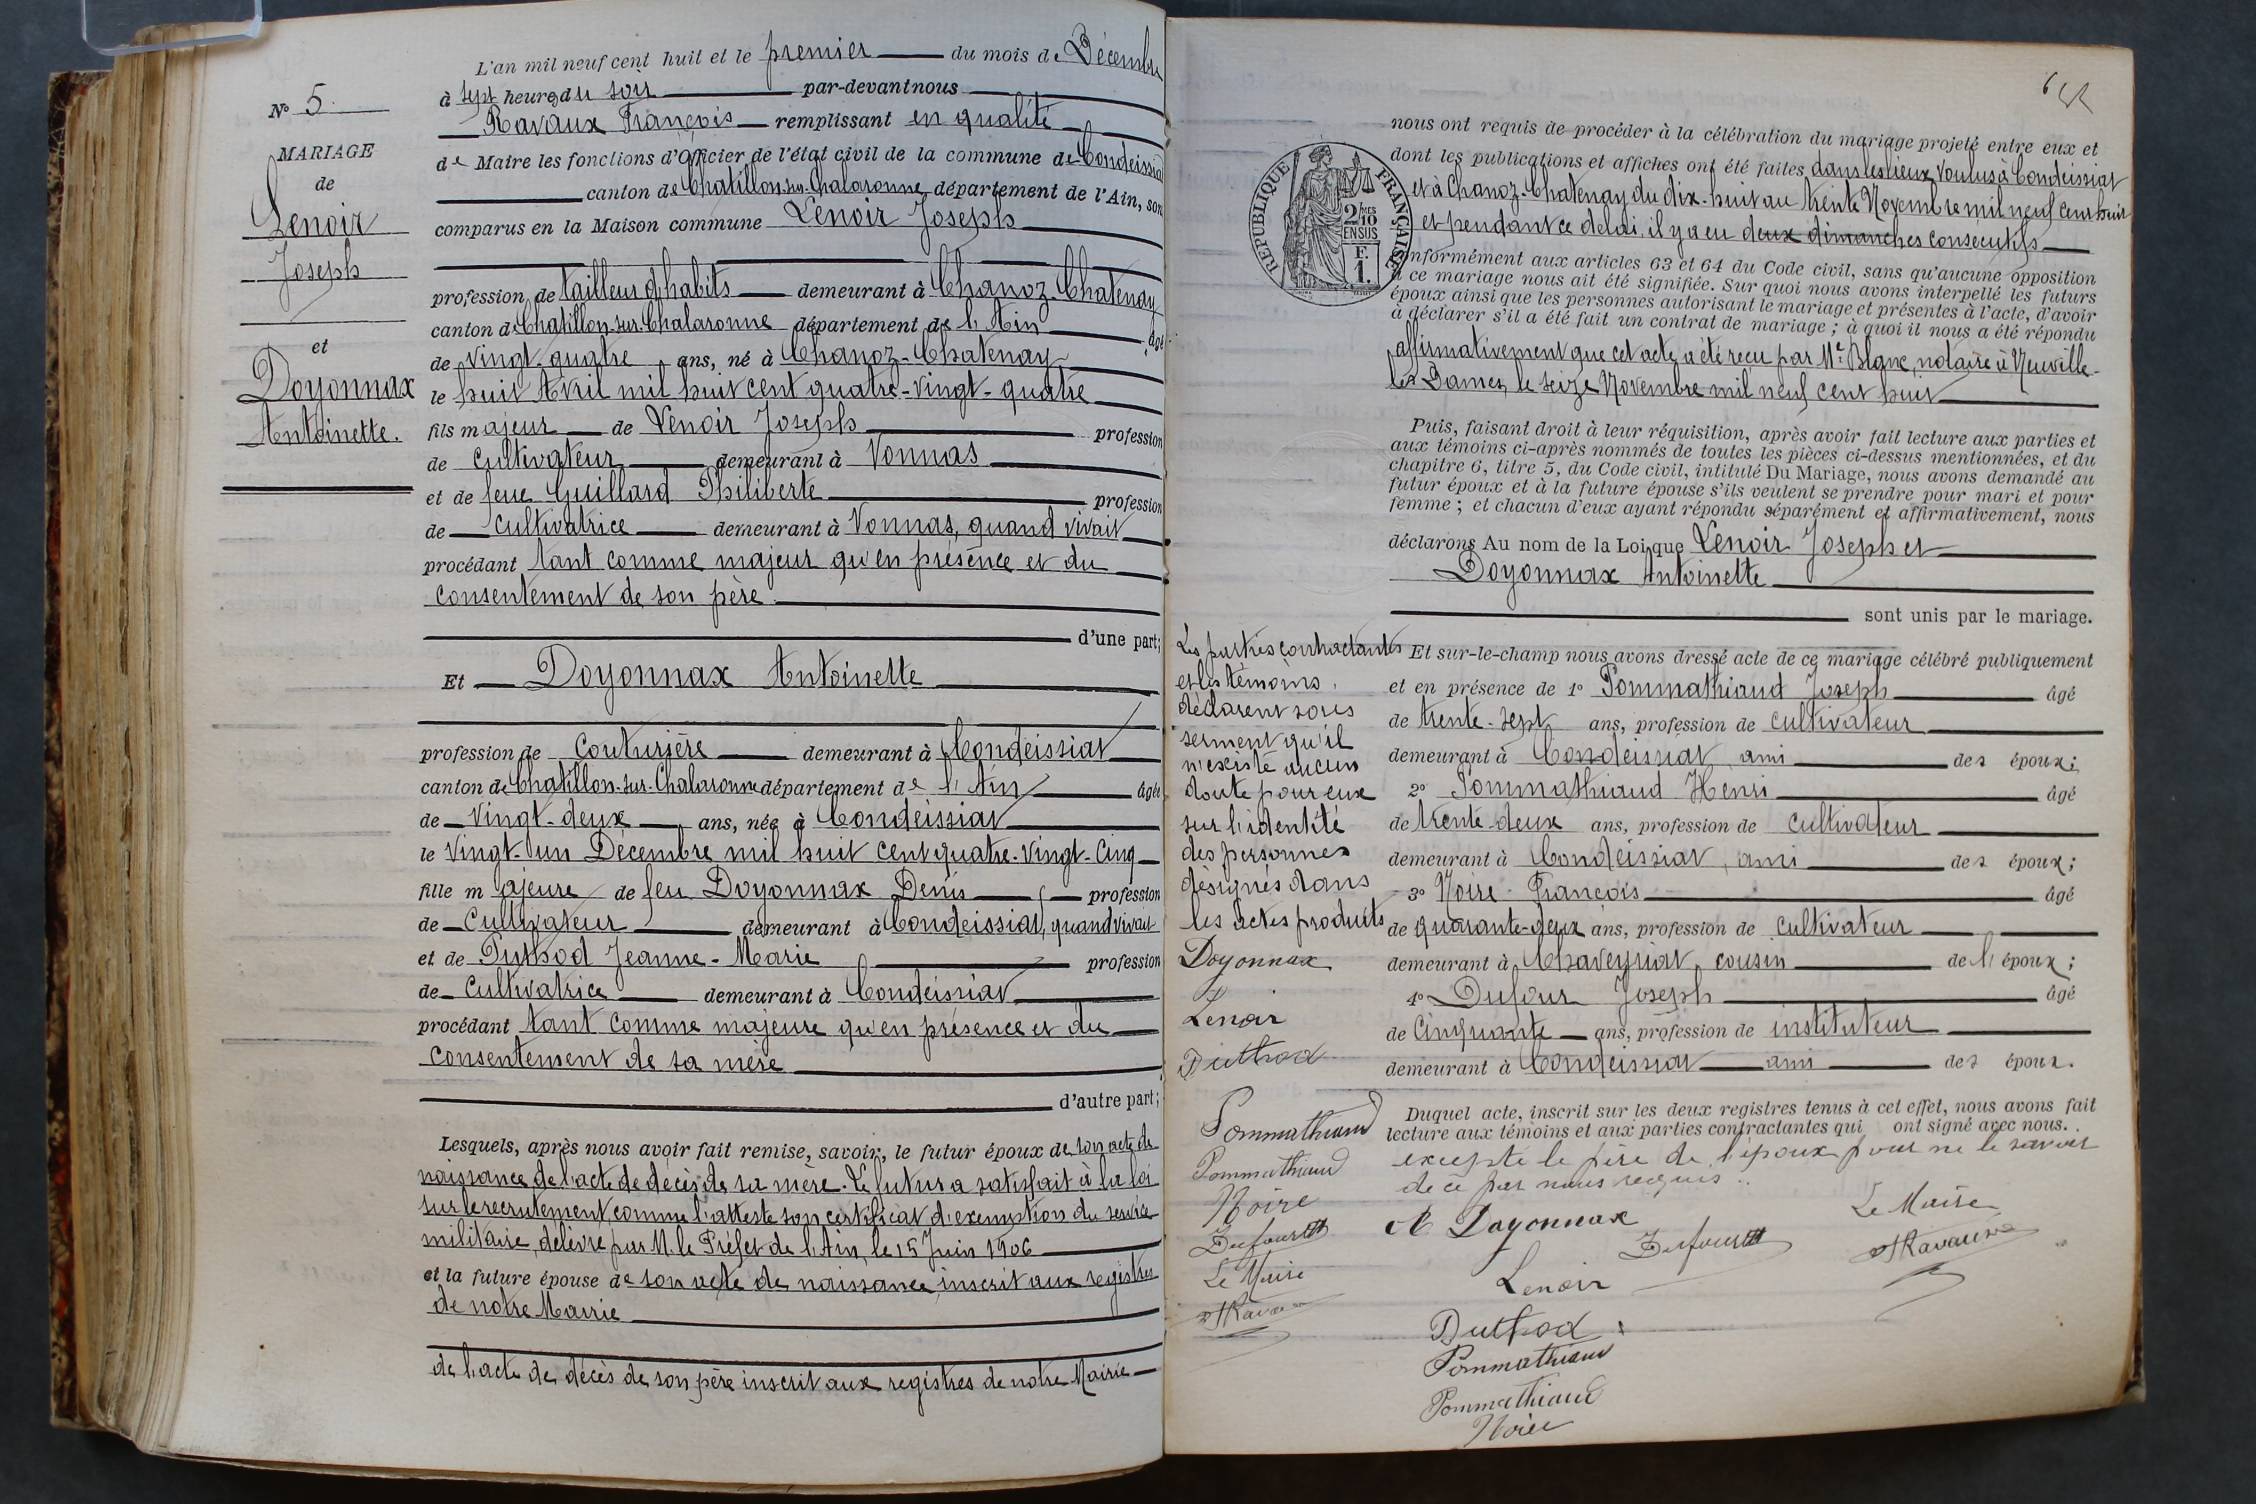 N° 5.
MARIAGE
de
Lenoir
Joseph
et
Doyonnax
Antoinette.
L'an mil neuf cent huit et le premier du mois de Décembre
à sept heures du soir par-devant nous
Ravaux François remplissant en qualité
de Maire les fonctions d'Officier de l'état civil de la commune de Condeissiat
canton de Chatillon-sur-Chalaronne département de l'Ain, son
comparus en la Maison commune Lenoir Joseph
profession de tailleur d'habits demeurant à Chanoz-Chatenay
canton de Chatillon-sur-Chalaronne département de l'Ain âgé
de vingt-quatre ans, né à Chanoz-Chatenay
le huit Avril mil huit cent quatre-vingt-quatre
fils majeur de Lenoir Joseph profession
de cultivateur demeurant à Vonnas
et de feue Guillard Philiberte profession
de cultivatrice demeurant à Vonnas, quand vivait
procédant tant comme majeur qu'en présence et du
consentement de son père
d'une part;
Et Doyonnax Antoinette
profession de couturière demeurant à Condeissiat
canton de Chatillon-sur-Chalaronne département de l'Ain âgée
de vingt-deux ans, née à Condeissiat
le vingt-un Décembre mil huit cent quatre-vingt-cinq
fille majeure de feu Doyonnax Denis profession
de cultivateur demeurant à Condeissiat, quand vivait
et de Puthod Jeanne-Marie profession
de cultivatrice demeurant à Condeissiat
procédant tant comme majeure qu'en présence et du
consentement de sa mère
d'autre part;
Lesquels, après nous avoir fait remise, savoir, le futur époux de son acte de
naissance de l'acte de décès de sa mère. Le futur a satisfait à la loi
sur le recrutement, comme l'atteste son certificat d'exemption du service
militaire, délivré par M. le Préfet de l'Ain, le 15 Juin 1906
et la future épouse de son acte de naissance, inscrit aux registres
de notre Mairie
de l'acte de décès de son père inscrit aux registres de notre Mairie
6
RÉPUBLIQUE FRANÇAISE
2/10 MES
EN SUS
F.
1.
nous ont requis de procéder à la célébration du mariage projeté entre eux et
dont les publications et affiches ont été faites dans les lieux voulus à Condeissiat
et à Chanoz-Chatenay du dix-huit au trente Novembre mil neuf cent huit
et pendant ce délai, il y a eu deux dimanches consécutifs
conformément aux articles 63 et 64 du Code civil, sans qu'aucune opposition
à ce mariage nous ait été signifiée. Sur quoi nous avons interpellé les futurs
époux ainsi que les personnes autorisant le mariage et présentes à l'acte, d'avoir
à déclarer s'il a été fait un contrat de mariage ; à quoi il nous a été répondu
affirmativement que cet acte a été reçu par Me Blanc, notaire à Neuville-
les-Dames, le seize Novembre mil neuf cent huit
Puis, faisant droit à leur réquisition, après avoir fait lecture aux parties et
aux témoins ci-après nommés de toutes les pièces ci-dessus mentionnées, et du
chapitre 6, titre 5, du Code civil, intitulé Du Mariage, nous avons demandé au
futur époux et à la future épouse s'ils veulent se prendre pour mari et pour
femme ; et chacun d'eux ayant répondu séparément et affirmativement, nous
déclarons Au nom de la Loi que Lenoir Joseph et
Doyonnax Antoinette
sont unis par le mariage.
Et sur-le-champ nous avons dressé acte de ce mariage célébré publiquement
et en présence de 1° Pommathiaud Joseph âgé
de trente-sept ans, profession de cultivateur
demeurant à Condeissiat, ami des époux;
2° Pommathiaud Henri âgé
de trente-deux ans, profession de cultivateur
demeurant à Condeissiat, ami des époux;
3° Noire François âgé
de quarante-deux ans, profession de cultivateur
demeurant à Chaveyriat, cousin de l'époux;
4° Dufour Joseph âgé
de cinquante ans, profession de instituteur
demeurant à Condeissiat ami des époux.
Duquel acte, inscrit sur les deux registres tenus à cet effet, nous avons fait
lecture aux témoins et aux parties contractantes qui ont signé avec nous.
excepté le père de l'époux pour ne le savoir
de ce par nous requis.
A Doyonnax
Dufour
Le Maire
Ravaux
Lenoir
Puthod
Pommathiaud
Pommathiaud
Noire
Les parties contractantes
et les témoins,
déclarent sous
serment qu'il
n'existe aucun
doute pour eux
sur l'identité
des personnes
désignés dans
les actes produits
Doyonnax
Lenoir
Puthod
Pommathiaud
Pommathiaud
Noire
Dufour
Le Maire
Ravaux